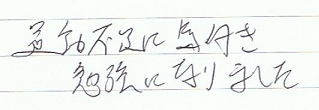 運動不足に気付き
勉強になりました